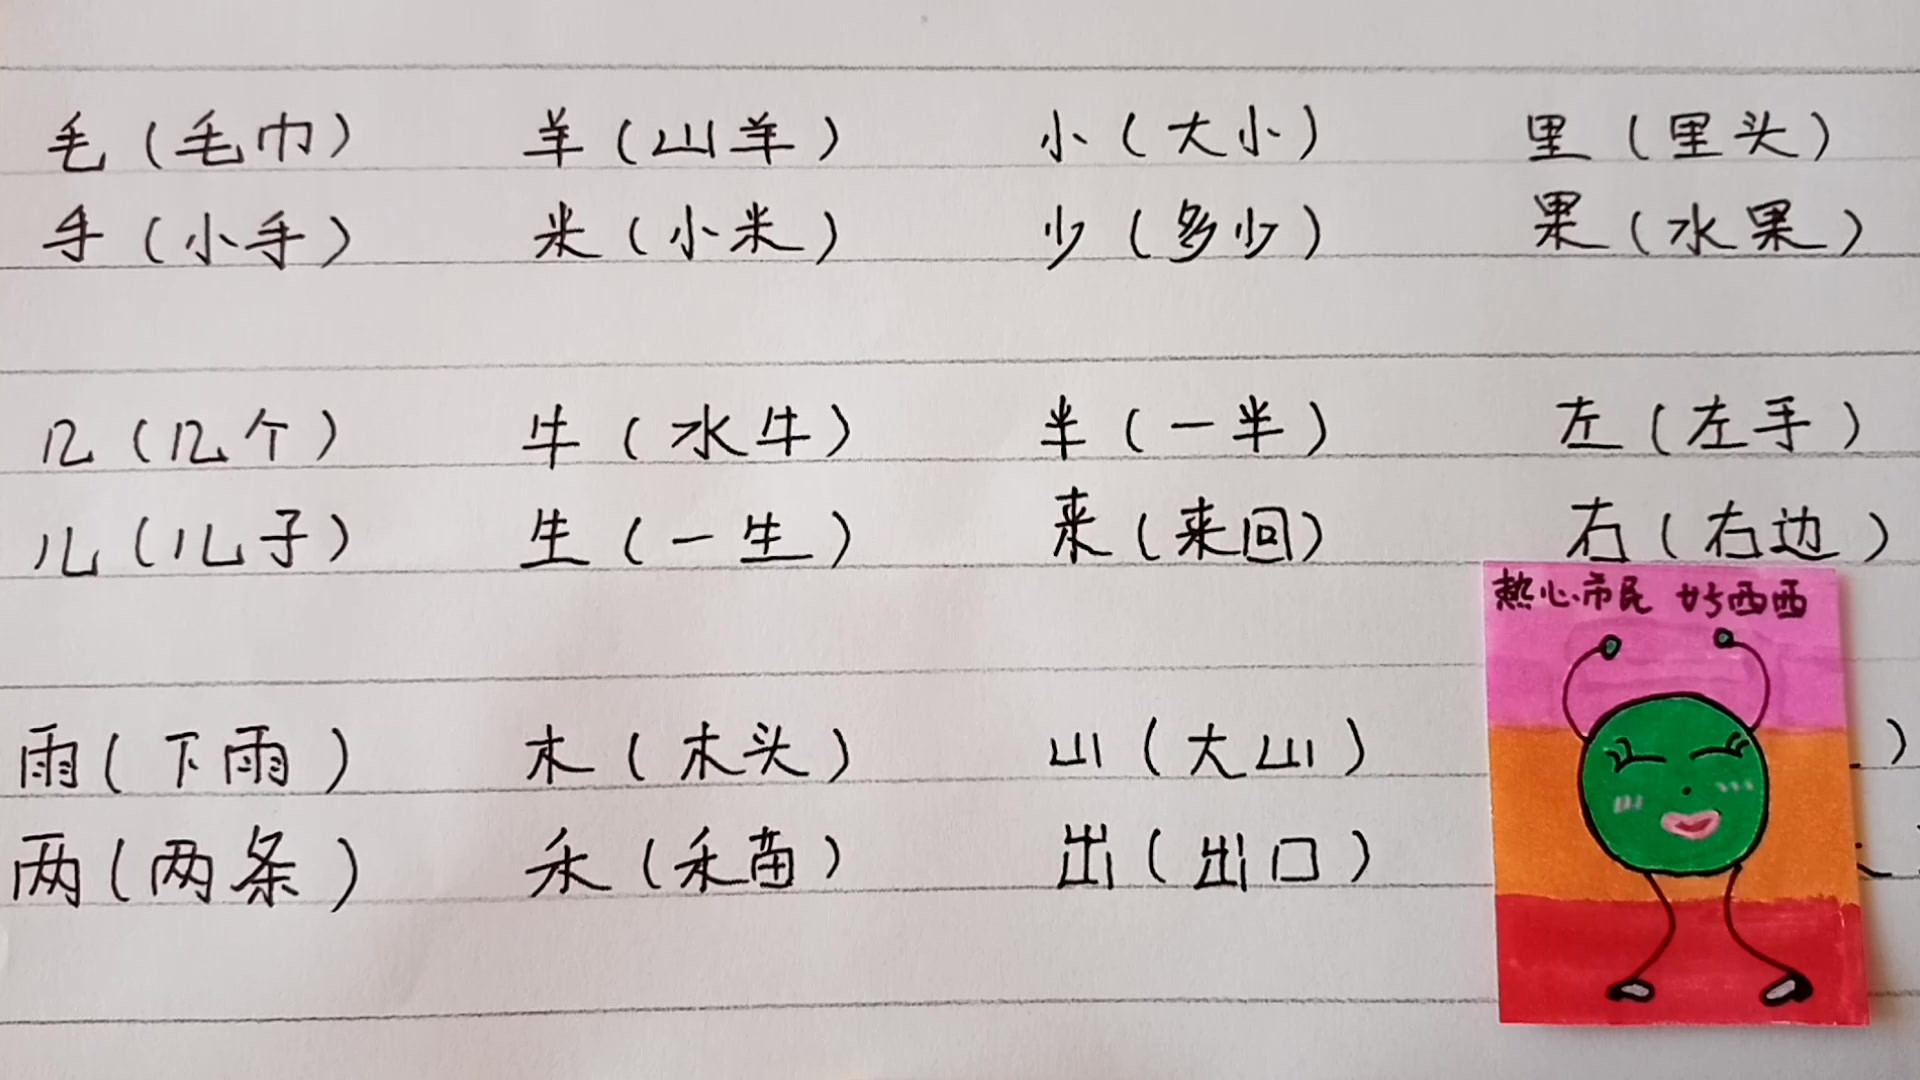 毛（毛巾） 羊（山羊） 小（大小） 里（里头）
手（小手） 米（小米） 少（多少） 果（水果）
几（几个） 牛（水牛） 半（一半） 左（左手）
儿（儿子） 生（一生） 来（来回） 右（右边）
热心市民 好西西
雨（下雨） 木（木头） 山（大山） ）
两（两条） 禾（禾苗） 出（出口）